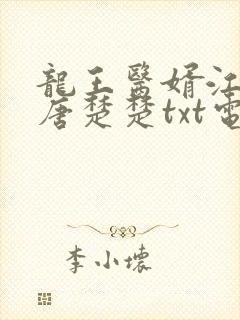 龍王醫婿江
唐楚楚txt電
李小壞